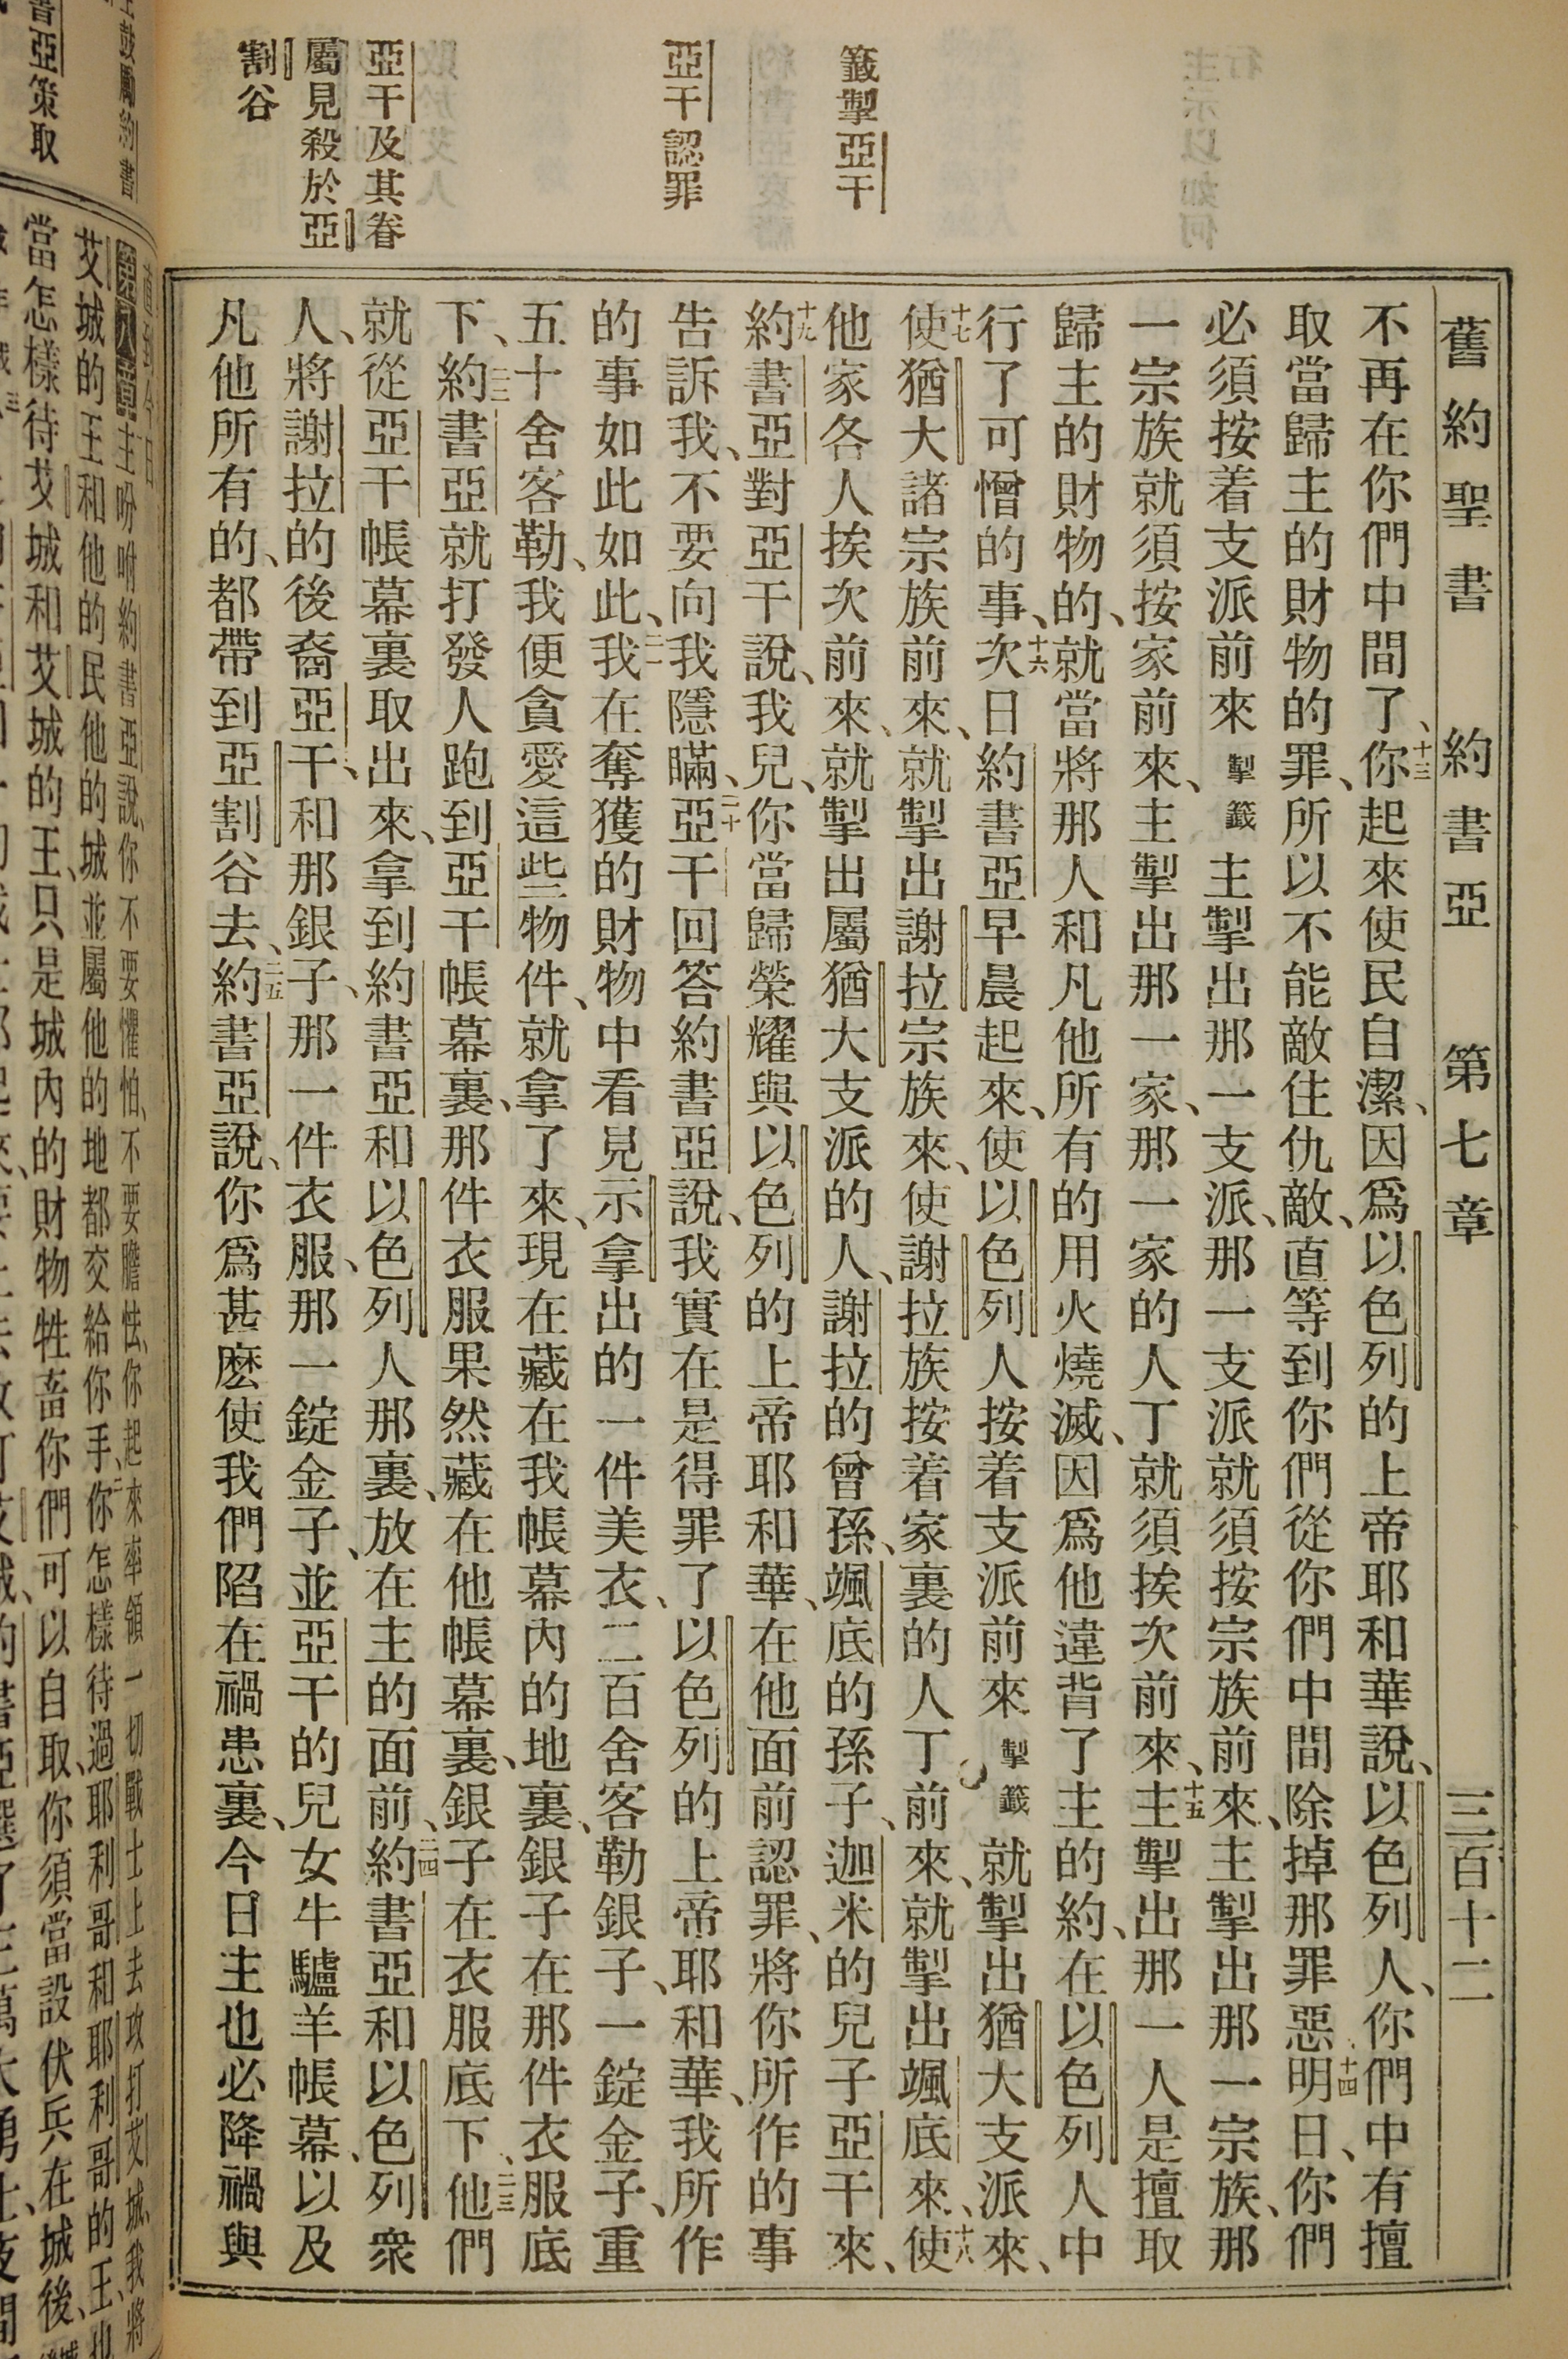 舊約聖書 約書亞 第七章 三百十二
籤掣亞干
亞干認罪
亞干及其眷
屬見殺於亞
割谷
不再在你們中間了、十三你起來使民自潔、因爲以色列的上帝耶和華說、以色列人、你們中有擅
取當歸主的財物的罪、所以不能敵住仇敵、直等到你們從你們中間除掉那罪惡、十四明日、你們
必須按着支派前來掣籤主掣出那一支派、那一支派就須按宗族前來、主掣出那一宗族、那
一宗族就須按家前來、主掣出那一家、那一家的人丁就須挨次前來、十五主掣出那一人是擅取
歸主的財物的、就當將那人和凡他所有的用火燒滅、因爲他違背了主的約、在以色列人中
行了可憎的事、十六次日約書亞早晨起來、使以色列人按着支派前來掣籤就掣出猶大支派來、
十七使猶大諸宗族前來、就掣出謝拉宗族來、使謝拉族按着家裏的人丁前來、就掣出颯底來、十八使
他家各人挨次前來、就掣出屬猶大支派的人、謝拉的曾孫、颯底的孫子、迦米的兒子亞干來、
十九約書亞對亞干說、我兒、你當歸榮耀與以色列的上帝耶和華、在他面前認罪、將你所作的事
告訴我、不要向我隱瞞、二十亞干回答約書亞說、我實在是得罪了以色列的上帝耶和華、我所作
的事如此如此、二一我在奪獲的財物中看見示拿出的一件美衣、二百舍客勒銀子、一錠金子、重
五十舍客勒、我便貪愛這些物件、就拿了來、現在藏在我帳幕內的地裏、銀子在那件衣服底
下、二二約書亞就打發人跑到亞干帳幕裏、那件衣服果然藏在他帳幕裏、銀子在衣服底下、二三他們
就從亞干帳幕裏取出來、拿到約書亞和以色列人那裏、放在主的面前、二四約書亞和以色列衆
人、將謝拉的後裔亞干、和那銀子、那一件衣服、那一錠金子、並亞干的兒女牛驢羊帳幕、以及
凡他所有的、都帶到亞割谷去、二五約書亞說、你爲甚麽使我們陷在禍患裏、今日主也必降禍與
主吩咐約書亞說、你不要懼怕、不要膽怯、你起來率領一切戰士上去攻打艾城、我將
艾城的王和他的民他的城並屬他的地都交給你手、二你怎樣待過耶利哥和耶利哥的王、也
當怎樣待艾城和艾城的王、只是城內的財物牲畜你們可以自取、你須當設伏兵在城後、